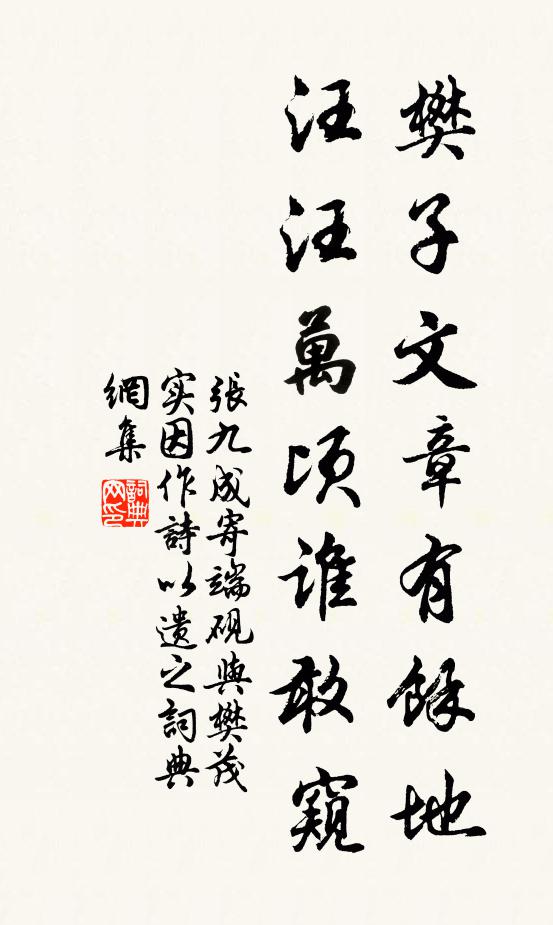 樊子文章有餘地
汪汪萬頃谁敢窺
張九成寄端硯與樊茂
实因作詩以遺之詞典
網集
詞典
网印